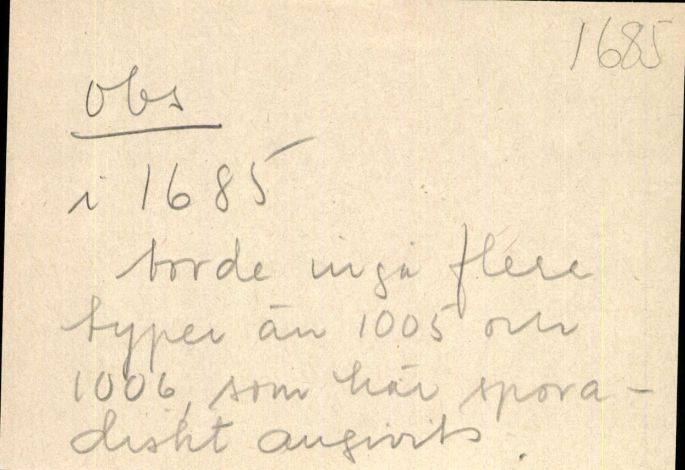 1685
obs
i 1685
torde ingå flere
typer än 1005 och
1006, som här spora-
diskt angivits.